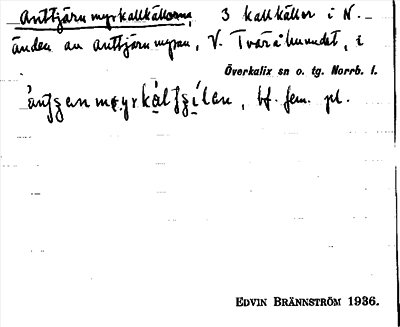 Anttjärnmyrkallkällorna, 3 kallkällor i N.-
änden av Anttjärnmyran, V. Tväråhuvudet, i
Överkalix sn o. tg. Norrb. l.
bf. fem. pl.
EDVIN BRÄNNSTRÖM 1936.